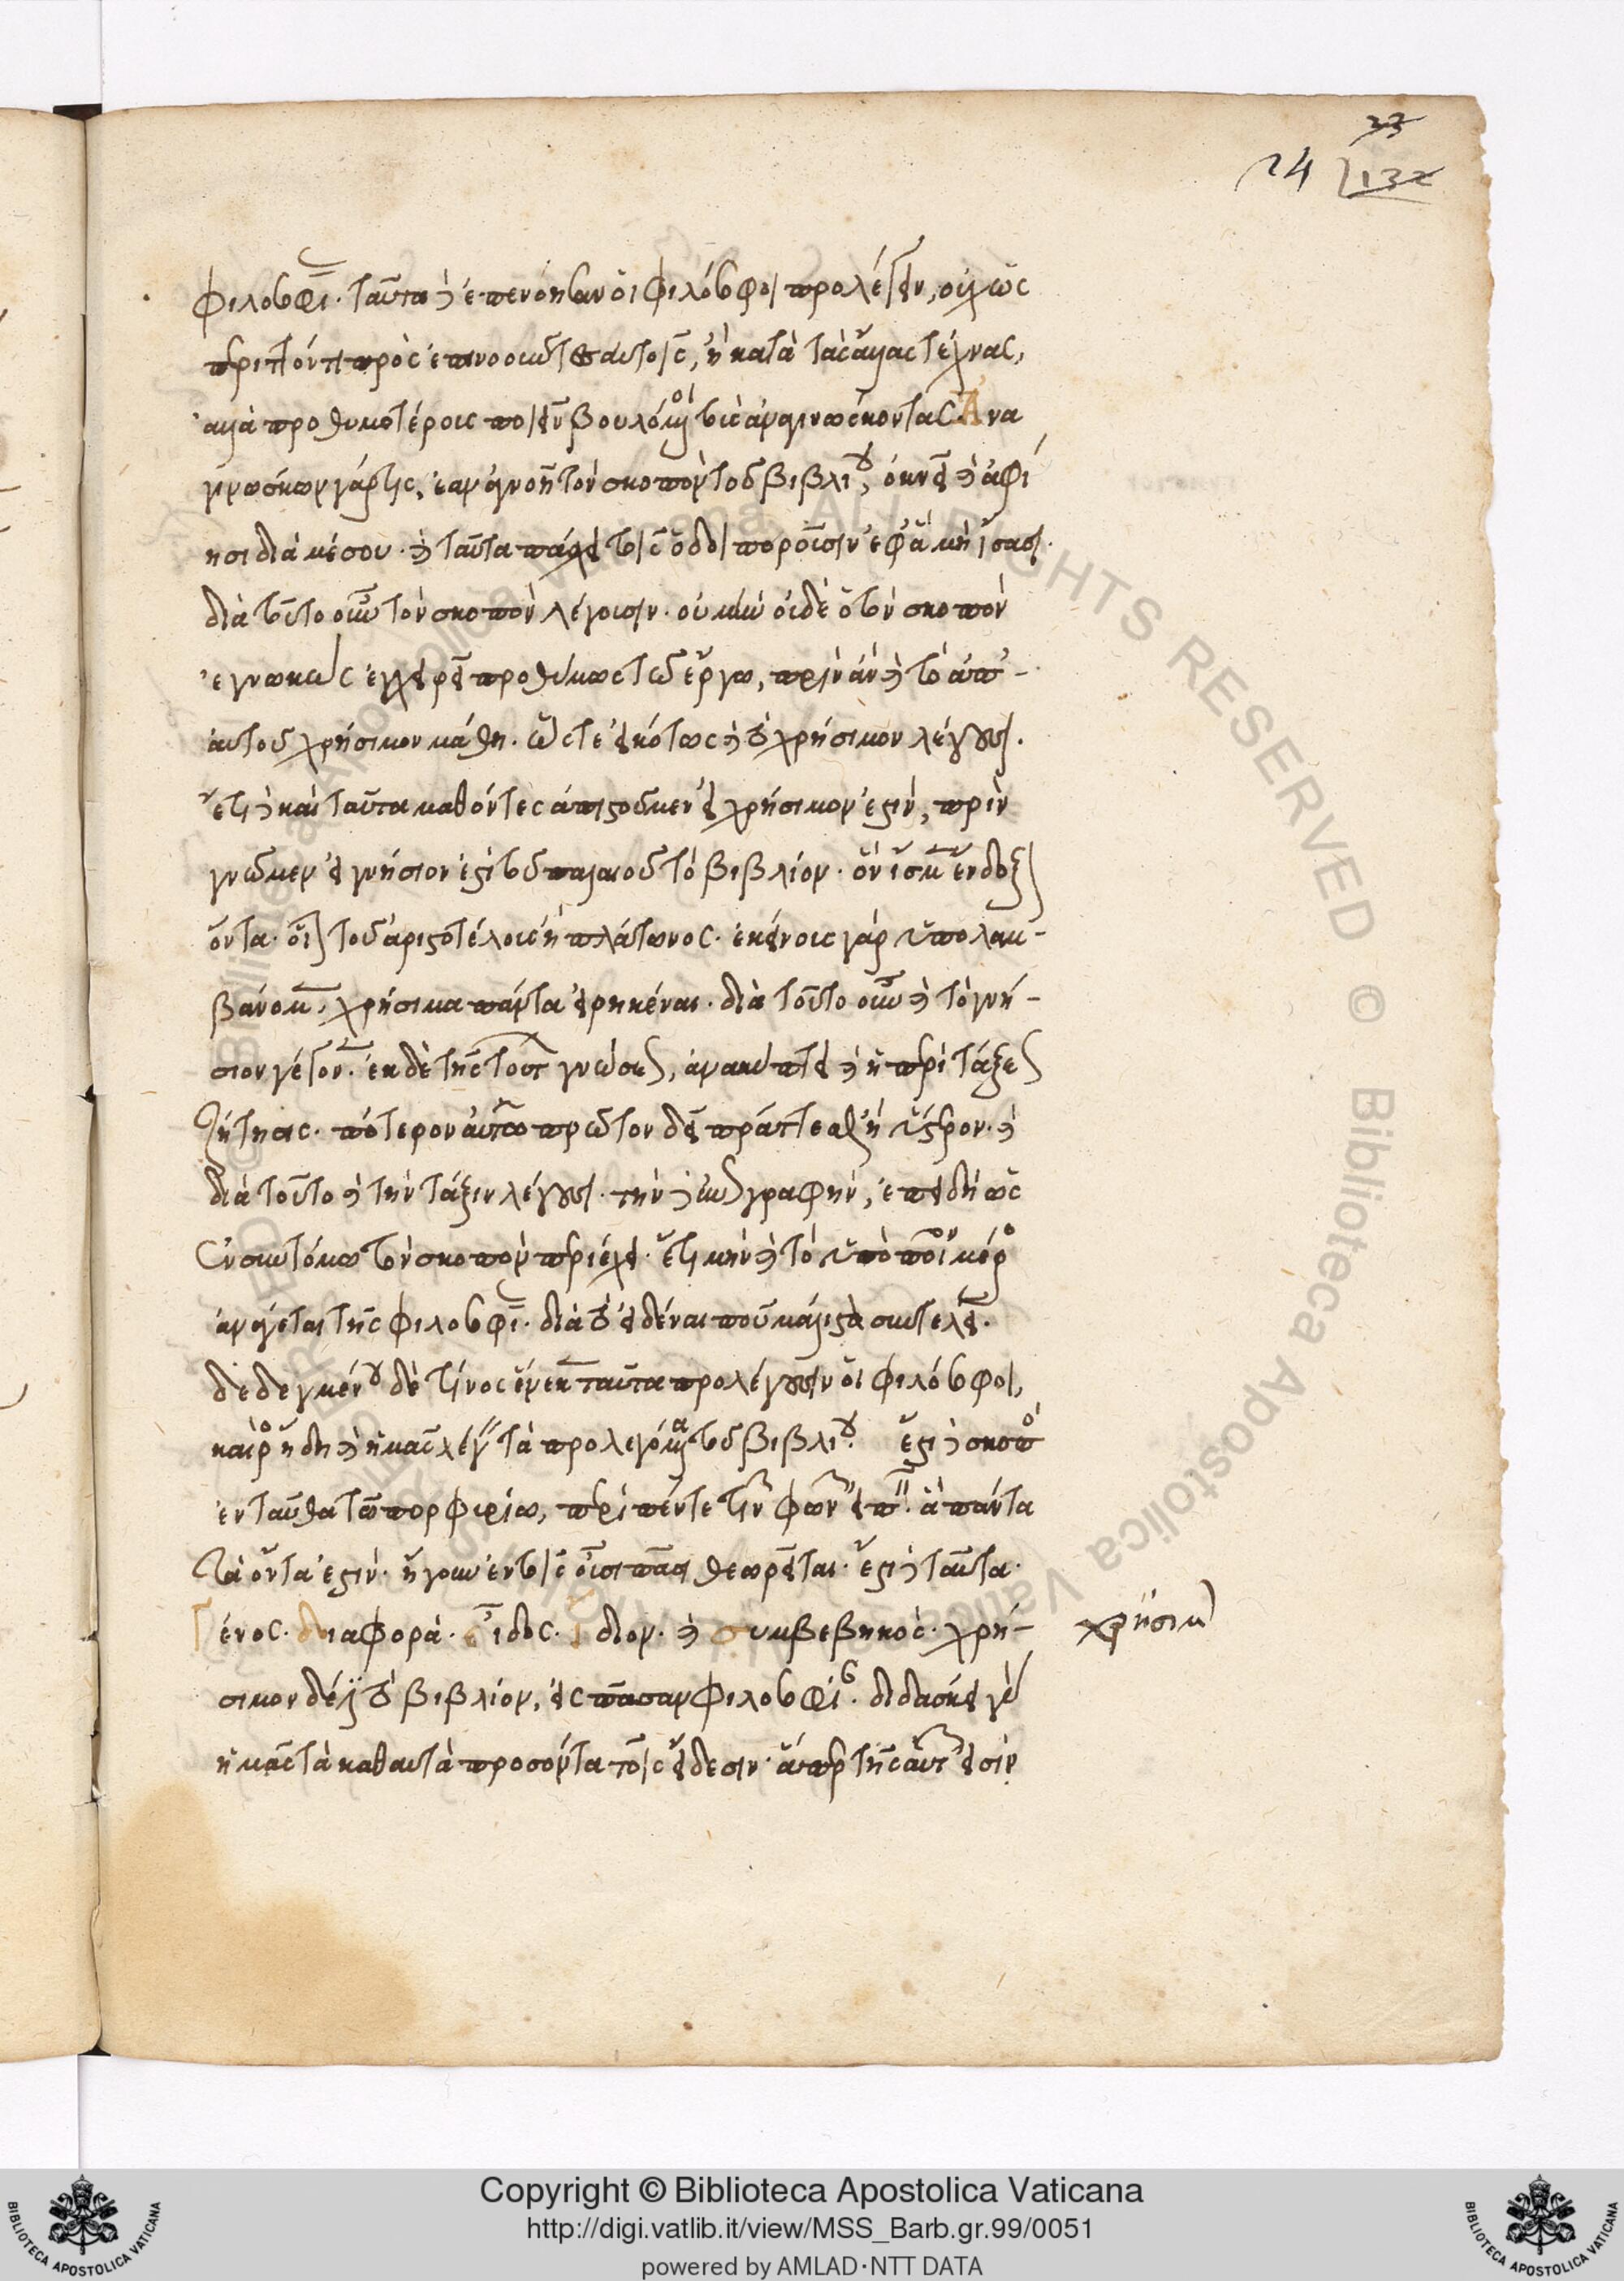 23
24 132
φιλοσοφίας. ταῦτα δὲ ἐπενόησαν οἱ φιλόσοφοι προλέγειν, οὐχ ὡς
περιττόν τι προσεπινοοῦντες αὐτοῖς, ἢ κατὰ τὰς ἄλλας τέχνας,
ἀλλὰ προθυμοτέρους ποιεῖν βουλόμενοι τοὺς ἀναγινώσκοντας. Ἀνα
γινώσκων γάρ τις, ἐὰν ἀγνοῇ τὸν σκοπὸν τοῦ βιβλίου, ὀκνεῖ καὶ ἀφί
ησι διὰ μέσου. καὶ ταὐτὰ πάσχει τοῖς ὁδοιποροῦσιν ἐφ' ἃ μὴ ἴσασι.
διὰ τοῦτο οὖν τὸν σκοπὸν λέγουσιν. οὐ μὴν οὐδὲ ὁ τὸν σκοπὸν
ἐγνωκὼς ἐγχειρεῖ προθύμως τῷ ἔργῳ, πρὶν ἂν καὶ τὸ ἀπ'
αὐτοῦ χρήσιμον μάθῃ. ὥστε εἰκότως καὶ τὸ χρήσιμον λέγουσι.
ἔτι δὲ καὶ ταῦτα μαθόντες ἀπιστοῦμεν εἰ χρήσιμον ἐστὶν, πρὶν
γνῶμεν εἰ γνήσιον ἐστὶ τοῦ παλαιοῦ τὸ βιβλίον. ὃν ἴσμεν ἔνδοξον
ὄντα. οἷον τοῦ ἀριστοτέλους ἢ πλάτωνος. ἐκείνους γὰρ ὑπολαμ-
βάνομεν χρήσιμα πάντα εἰρηκέναι. διὰ τοῦτο οὖν καὶ τὸ γνή-
σιον λέγουσιν. ἐκ δὲ τῆς τούτου γνώσεως, ἀνακύπτει καὶ ἡ περὶ τάξεως
ζήτησις. πότερον αὐτῷ πρῶτον δεῖ πράττεσθαι ἢ ὕστερον. καὶ
διὰ τοῦτο καὶ τὴν τάξιν λέγουσι. τὴν δὲ ἐπιγραφὴν, ἐπειδὴ ὡς
ἐν συντόμῳ τὸν σκοπὸν περιέχει. ἔτι μὴν καὶ τὸ ὑπὸ ποῖον μέρος
ἀνάγεται τῆς φιλοσοφίας. διὰ τὸ εἰδέναι ποῦ μάλιστα συντελεῖ.
δεδειγμένου δὲ τίνος ἕνεκεν ταῦτα προλέγουσιν οἱ φιλόσοφοι,
καιρὸς ἤδη καὶ ἡμᾶς λέγειν τὰ προλεγόμενα τοῦ βιβλίου. ἔστι δὲ σκοπὸς
ἐνταῦθα τῷ πορφυρίῳ, περὶ πέντε τινῶν φωνῶν εἰπεῖν. ἃ πάντα
τὰ ὄντα ἐστὶν. ἤγουν ἐν τοῖς οὖσι πᾶσι θεωρεῖται. ἔστι δὲ ταῦτα.
Γένος. διαφορά. Εἶδος. Ἴδιον. καὶ συμβεβηκός. χρή-
σιμον δέ ἐστι τὸ βιβλίον, εἰς πᾶσαν φιλοσοφίαν. διδάσκει γὰρ
ἡμᾶς τὰ καθ' αὑτὰ προσόντα τοῖς εἴδεσιν. ἅπερ τῆς αὐτῶν εἰσὶν
χρήσιμον
Copyright © Biblioteca Apostolica Vaticana
http://digi.vatlib.it/view/MSS_Barb.gr.99/0051
powered by AMLAD·NTT DATA